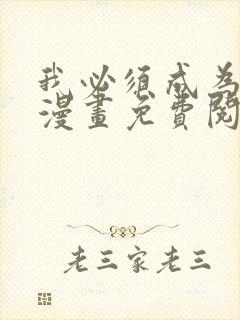 我必须成为
漫畫免費閱
老三家老三